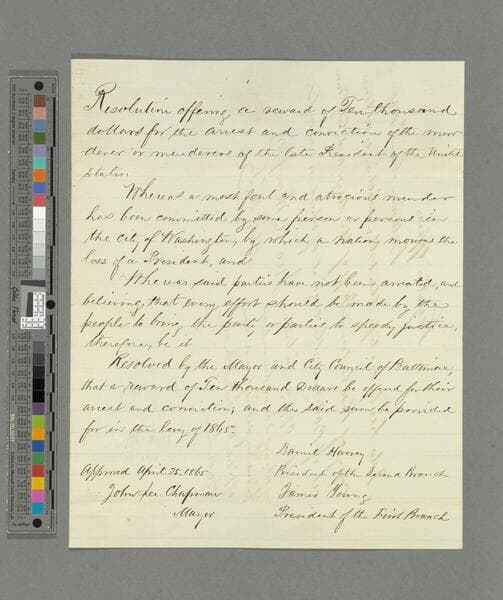 Resolution offering a reward of Ten thousand
dollars for the arrest and conviction of the mur
derer or murderers of the late President of the United
States.
Whereas a most foul and atrocious murder
has been committed by some person or persons in
the city of Washington, by which a nation mourns the
loss of a President, and
Whereas said parties have not been arrested, and
believing that every effort should be made by the
people to bring the party or parties to speedy justice,
therefore, be it
Resolved by the Mayor and City Council of Baltimore,
that a reward of Ten thousand Dollars be offered for their
arrest and conviction; and the said sum be provided
for in the levy of 1865.
Daniel Harvey
Approved April 25. 1865 President of the Second Branch
John Lee Chapman James Young
Mayor President of the First Branch